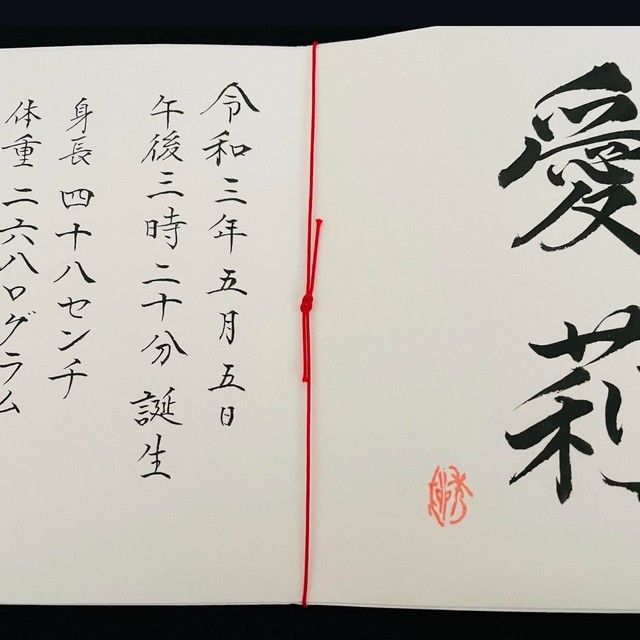 愛莉
令和三年五月五日
午後三時二十分 誕生
身長 四十八センチ
体重 二六八〇グラム